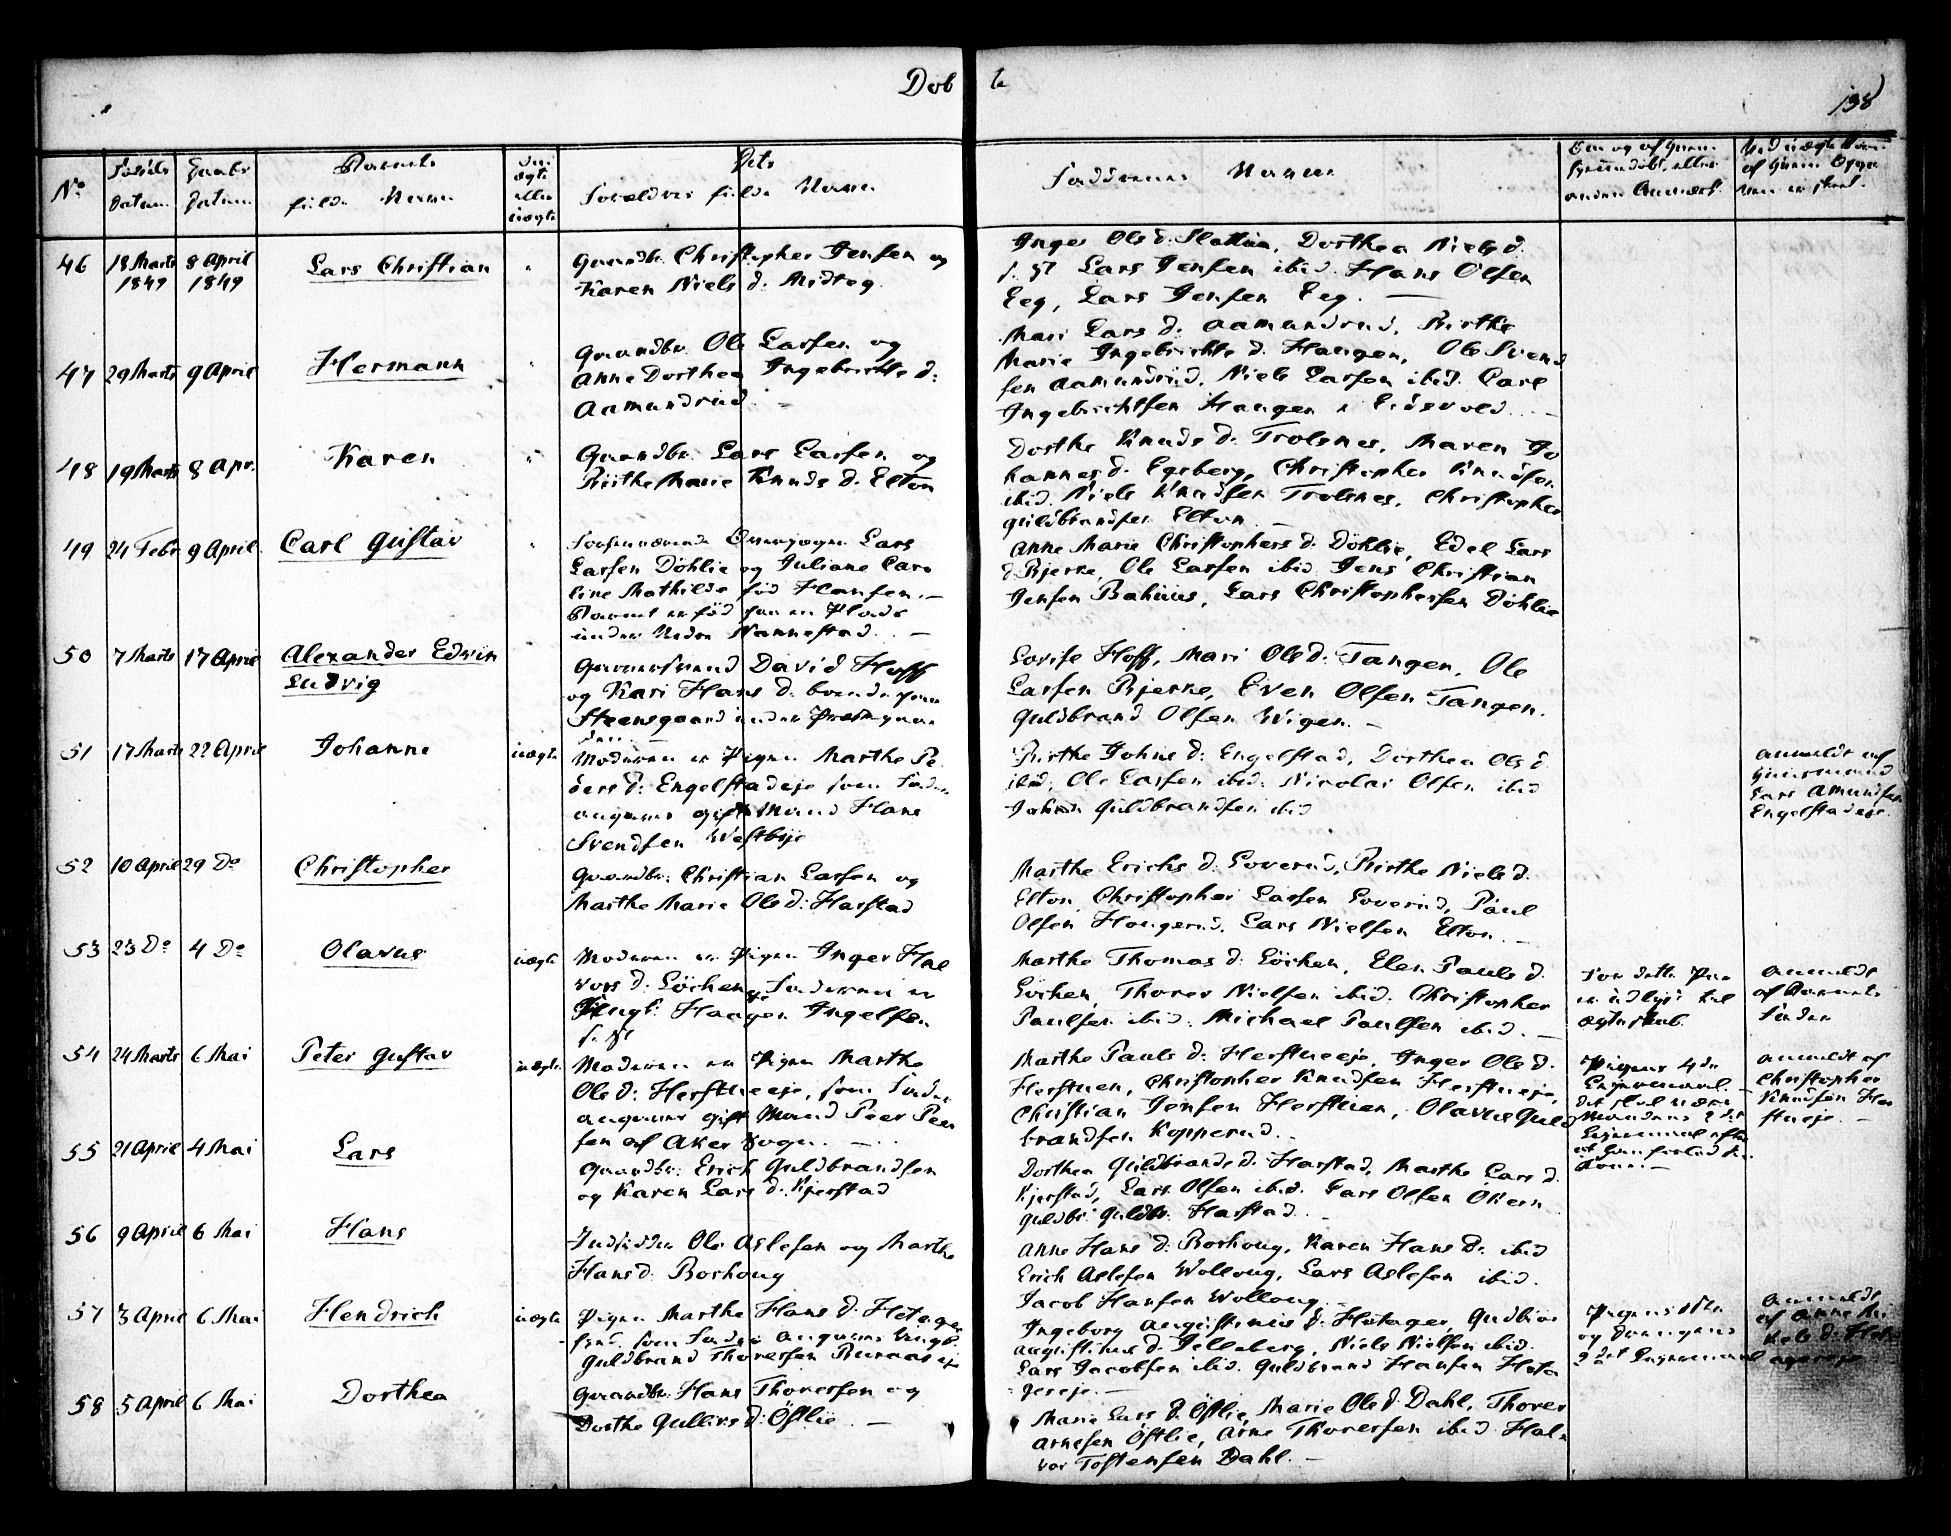 Døb te
138
No
Fødsels Datum
Daabs Datum
Barnets fulde Navn
Om ægte eller uægte
Dets Forældres fulde Navne
Faddernes Navne
46 18 Marts 1849 8 April 1849 Lars Christian
Gaardbr. Christopher Jensen og
Karen Niels d. Midteg
Inger Ols d. Slattum, Dorthea Niels d.
s. St Lars Jensen ibid. Hans Olsen
Eeg, Lars Jensen Eeg.
47 29 Marts 9 April Hermann
Gaardbr. Ole Larsen og
Anne Dorthea Ingebrichts d:
Aamundrud
Mari Lars d. Aamundrud, Birthe
Marie Ingebrichts d. Haugen, Ole Svend
sen Aamundrud, Niels Larsen ibid. Carl
Ingebrichtsen Haugen i Eidsvold
48 19 Marts 8 Apr. Karen
Gaardbr. Lars Larsen og
Birthe Marie Knuds d. Elton
Dorthe Knuds d. Trolsnes, Maren Jo
hannes d. Egeberg, Christopher Knudsen
ibid. Niels Knudsen Trolsnes, Christopher
Guldbrandsen Elton
49 24 Febr 9 April Carl Gustav
Lars
Larsen Döhlie og Juliane Caro
line Mathilde fød Hansen.
Barnet er fød paa en Plads
under Nedre Nannestad.
Anne Marie Christophers d. Döhlie, Edel Lars
d. Bjerke, Ole Larsen ibid. Jens Christian
Jensen Bahuus, Lars Christophersen Döhlie
50 7 Marts 17 April Alexander Edvin
Ludvig
David Hoff
og Kari Hans d. boende paa
Steensgaard under Præstegaar
den
Lovise Hoff, Mari Ols d. Tangen, Ole
Larsen Bjerke, Even Olsen Tangen.
Guldbrand Olsen Wigen.
51 17 Marts 22 April Johanne uægte
Moderen er Pigen Marthe Pe
ders d: Engelstadeje som Fader
angives gift Mand Hans
Svendsen Westbye
Birthe Johns d: Engelstad, Dorthea Ols d.
ibid, Ole Larsen ibid. Nicolai Olsen ibid
Johan Guldbrandsen ibid
Anmeldt af
Huusmand
Lars Amundsen
Engelstadeje
52 10 April 29 Do Christopher
Gaardbr: Christian Larsen og
Marthe Marie Ols d: Harstad
Marthe Erichs d. Loverud, Birthe Niels d.
Elton, Christopher Larsen Loverud, Paul
Olsen Haugerud, Lars Nielsen Elton
53 23 Do 4 Do Olavus uægte
Moderen er Pigen Inger Hal
vors d. Löchen, Faderen er
Ungk: Haagen Ingelsen
s. St
Marthe Thomas d: Löchen, Elen Pauls d.
Löchen, Thorer Nielsen ibid. Christopher
Paulsen ibid. Michael Paulsen ibid.
For dette Par
er udlyst til
Ægteskab.
Anmeldt
af Barnets
Fader
54 24 Marts 6 Mai Peter Gustav uægte
Moderen er Pigen Marthe
Ols d: Herstueeje, som Fader
angives gift Mand Peer Peer
sen af Aker Sogn.
Marthe Pauls d: Herstueeje, Inger Ols d.
Herstuen, Christopher Knudsen Herstueeje,
Christian Jensen Herstuen, Olavus Guld
brandsen Kopperud.
Pigens 4de
Leiermaal.
det skal være
Mandens 2det
Leiermaal efter
at han forlod sin
Kone.
Anmeldt af
Christopher
Knudsen Her
stueje.
55 21 April 4 Mai Lars
Gaardbr: Erich Guldbrandsen
og Karen Lars d. Kjerstad
Dorthea Guldbrands d. Harstad, Marthe Lars d.
Kjerstad, Lars Olsen ibid. Lars Olsen Okern
Guldbr. Guldbr. Harstad.
56 9 April 6 Mai Hans
Indsidder Ole Aslesen og Marthe
Hans d. Borhoug
Anne Hans d. Borhoug, Karen Hans d. ibid
Erich Aslesen Wolloug, Lars Aslesen ibid.
Jacob Hansen Wolloug
57 3 April 6 Mai Hendrich uægte
Pigen Marthe Hans d. Hotager
som Fader angives Ungk.
Guldbrand Thoresen Buraas eje
Ingeborg Augustinus d. Hotager, Gudbior
Augustinus d. Jelleberg, Niels Nielsen ibid.
Lars Jacobsen ibid. Guldbrand Hansen Hota
gereje.
Pigens 1ste
og Drengens
2det Leiermaal
Anmeldt
af Anne Ni
kels d. Hot
agereje
58 5 April 6 Mai Dorthea
Gaardbr. Hans Thoresen og
Dorthe Gullivs d: Östlie
Marie Lars d. Östlie, Marie Ols d. Dahl, Thorer
Arnesen Östlie, Arne Thoresen ibid Hal
vor Tostensen Dahl.